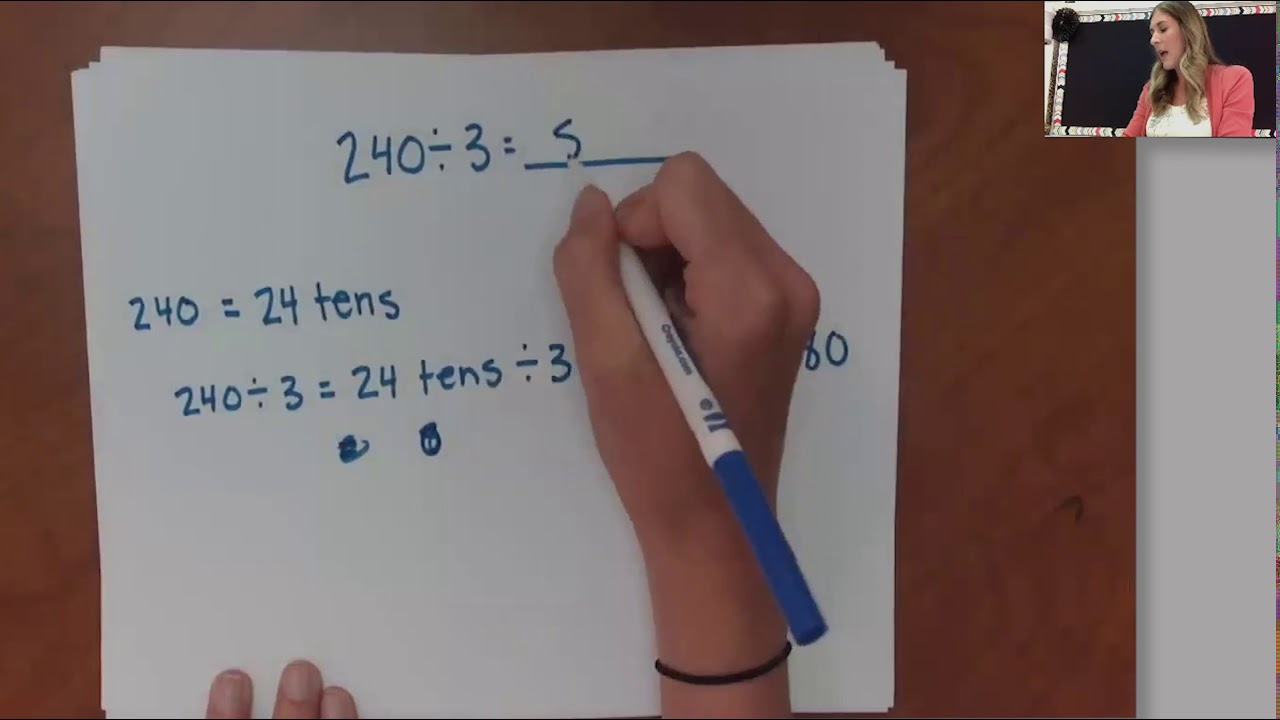 240 ÷ 3 = S
240 = 24 tens
240 ÷ 3 = 24 tens ÷ 3 80
Crayola.com